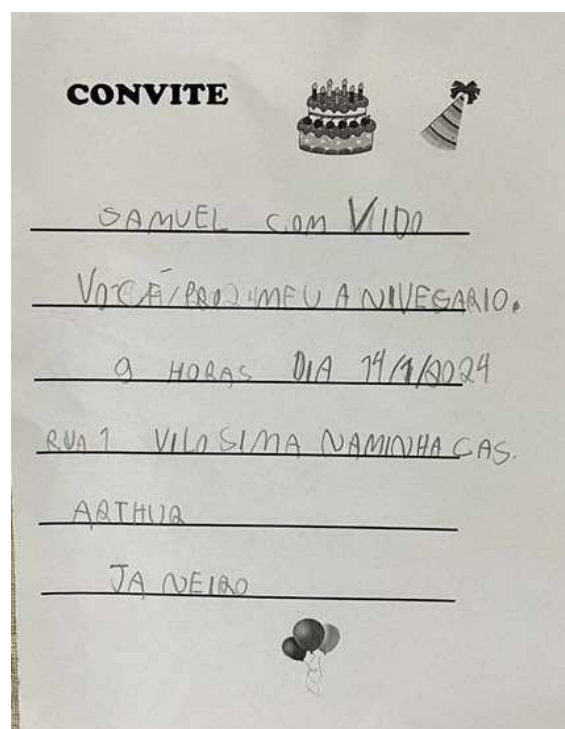 CONVITE
SAMUEL COM VIIDO
VOCÊ PRO MEU ANIVEGARIO.
9 HORAS DIA 14/1/2024
RUA 1 VILOSIMA NAMINHA CAS.
ARTHUR
JANEIRO